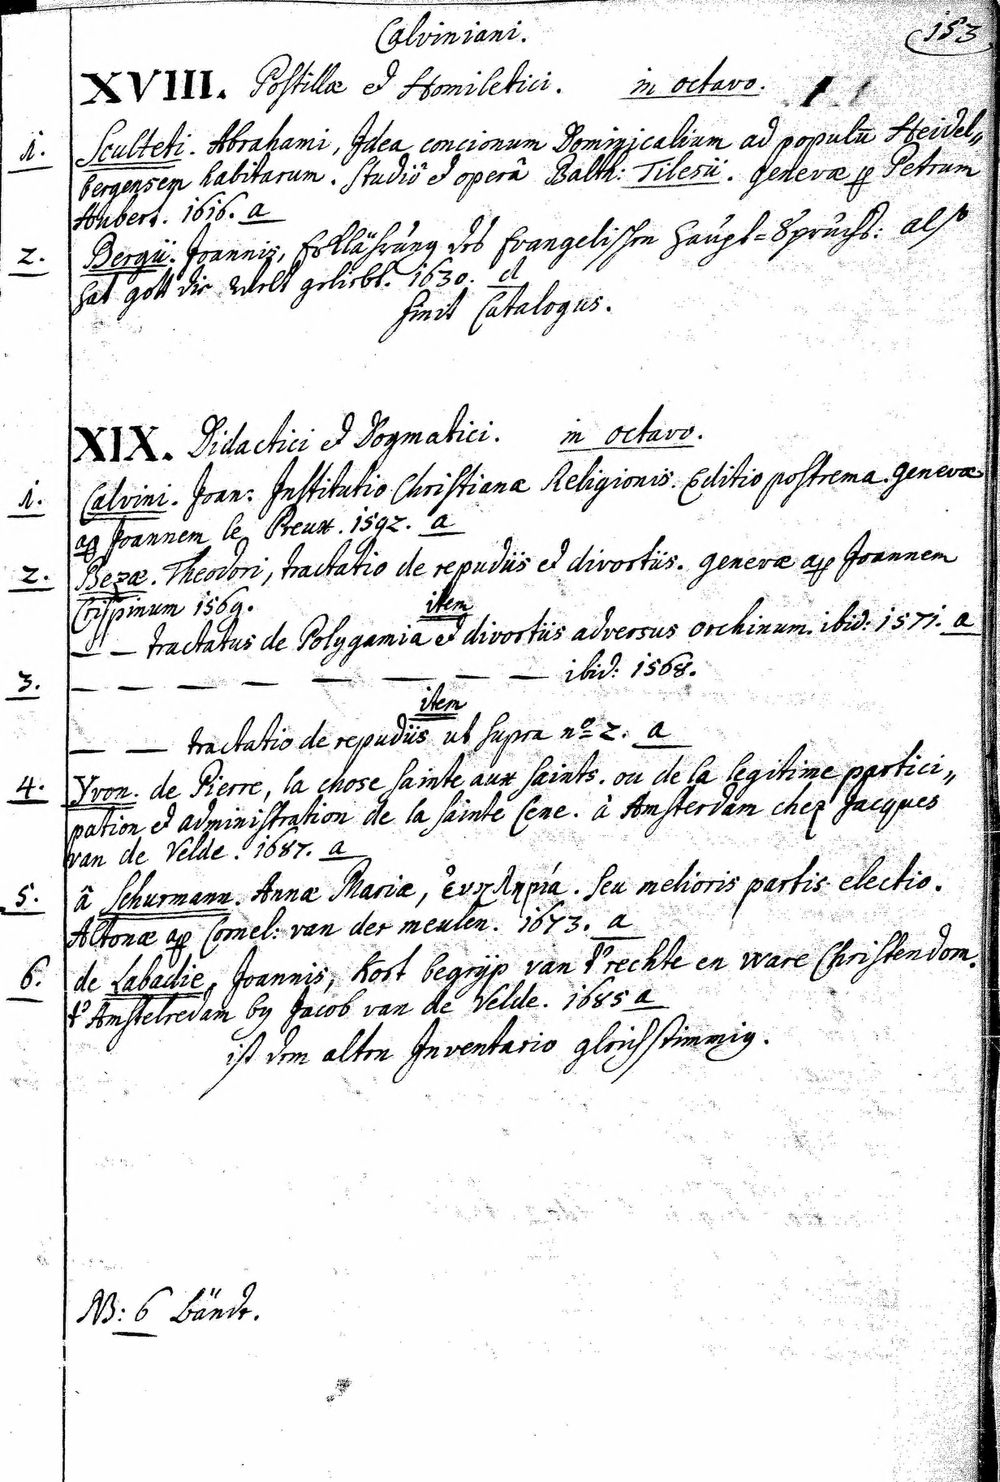 153
Calviniani.
XVIII. Postillæ et Homiletici. in octavo.
1. Sculteti. Abrahami, Idea concionum Dominicalium ad populū Heidel„
bergensem habitarum. Studiô et operâ Balth: Tilesii. Genevæ ap Petrum
Aubert. 1616. a
2. Bergii. Joannis, Erklährung des Evangelischen Haupt=Spruchs: also
hat gott die Welt geliebt. 1630. d
finit Catalogus.
XIX. Didactici et Dogmatici. in octavo.
1. Calvini. Joan: Institutio Christianæ Religionis. Editio postrema. Genevæ
ap Joannem le Preux. 1592. a
2. Bezæ. Theodori, tractatio de repudiis et divortiis. Genevæ ap Joannem
Crispinum 1569.
item
— — tractatus de Polygamia et divortiis adversus Ochinum. ibid: 1571. a
3. — — — — — — — — ibid: 1568.
item
— — tractatio de repudiis ut supra nº 2. a
4. Yvon. de Pierre, la chose sainte aux saints. ou de la legitime partici„
pation et administration de la sainte Cene. à Amsterdam chez Jacques
van de Velde. 1687. a
5. â Schurmann. Annæ Mariæ, Ἐυκληρία. seu melioris partis electio.
Altonæ ap Cornel: van der meulen. 1673. a
6. de Labadie, Joannis, Kort begrijp van t'rechte en ware Christendom.
t' Amstelredam by Jacob van de Velde. 1685 a
ist dem alten Inventario gleichstimmig.
NB: 6 Bände.